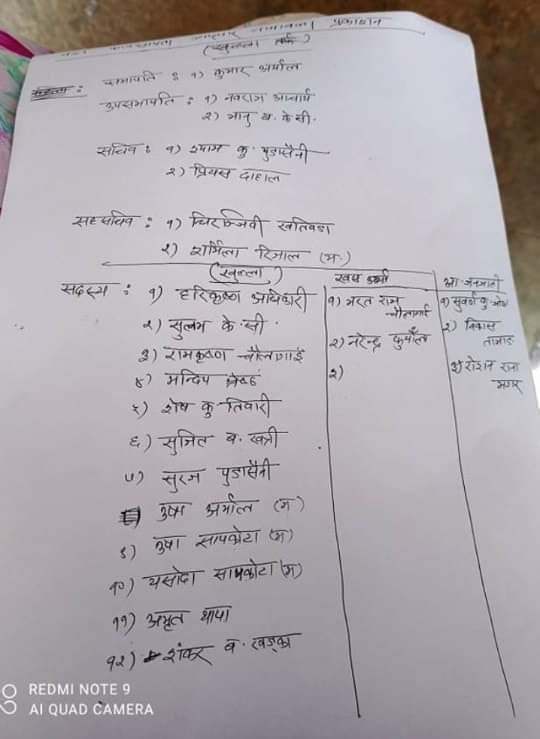 प्रकाशन
(खुल्ला तर्फ)
सभापति : १) कुमार अर्याल
उपसभापति : १) नवराज आचार्य
२) भानु ब. के.सी.
सचिव : १) श्याम कु. पुडासैनी
२) प्रियस दाहाल
सहसचिव : १) चिरञ्जिवी खतिवडा
२) शर्मिला रिमाल (म.)
(खुल्ला)
सदस्य : १) हरिकृष्ण अधिकारी
२) सुलभ के.सी.
३) रामकृष्ण चौलागाईं
४) मन्दिप श्रेष्ठ
५) शेष कु. तिवारी
६) सुजित ब. खत्री
७) सुरज पुडासैनी
उषा अर्याल (म)
९) उषा सापकोटा (म)
१०) यसोदा सापकोटा (म)
११) अमृत थापा
१२) शंकर ब. खड्का
खस आर्य
१) भरत राज चौलागाईं
२) नरेन्द्र कुमार
३)
आ. जनजाती
१) सुवर्ण कु.
२) विकास तामाङ
३) रोशन राना मगर
REDMI NOTE 9
AI QUAD CAMERA